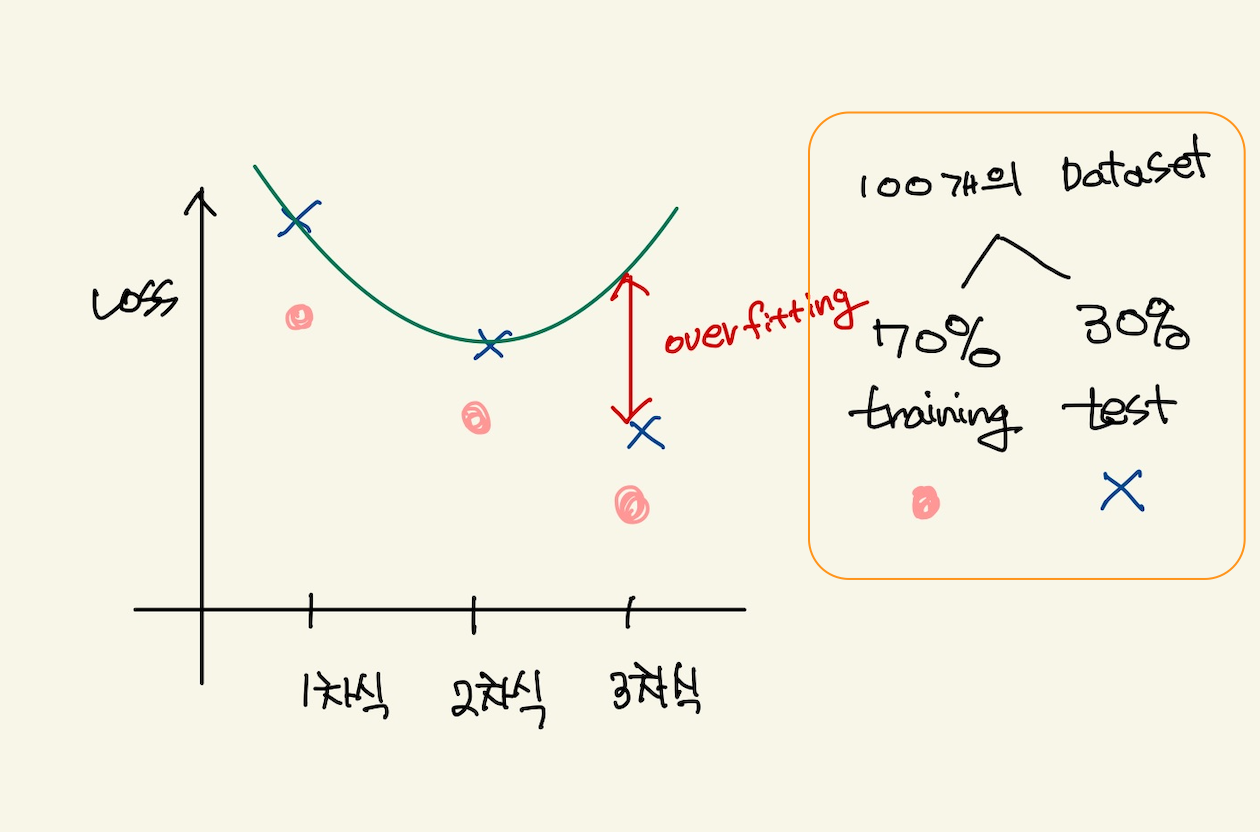 Loss
overfitting
1차식 2차식 3차식
100개의 Dataset
70% 30%
training test